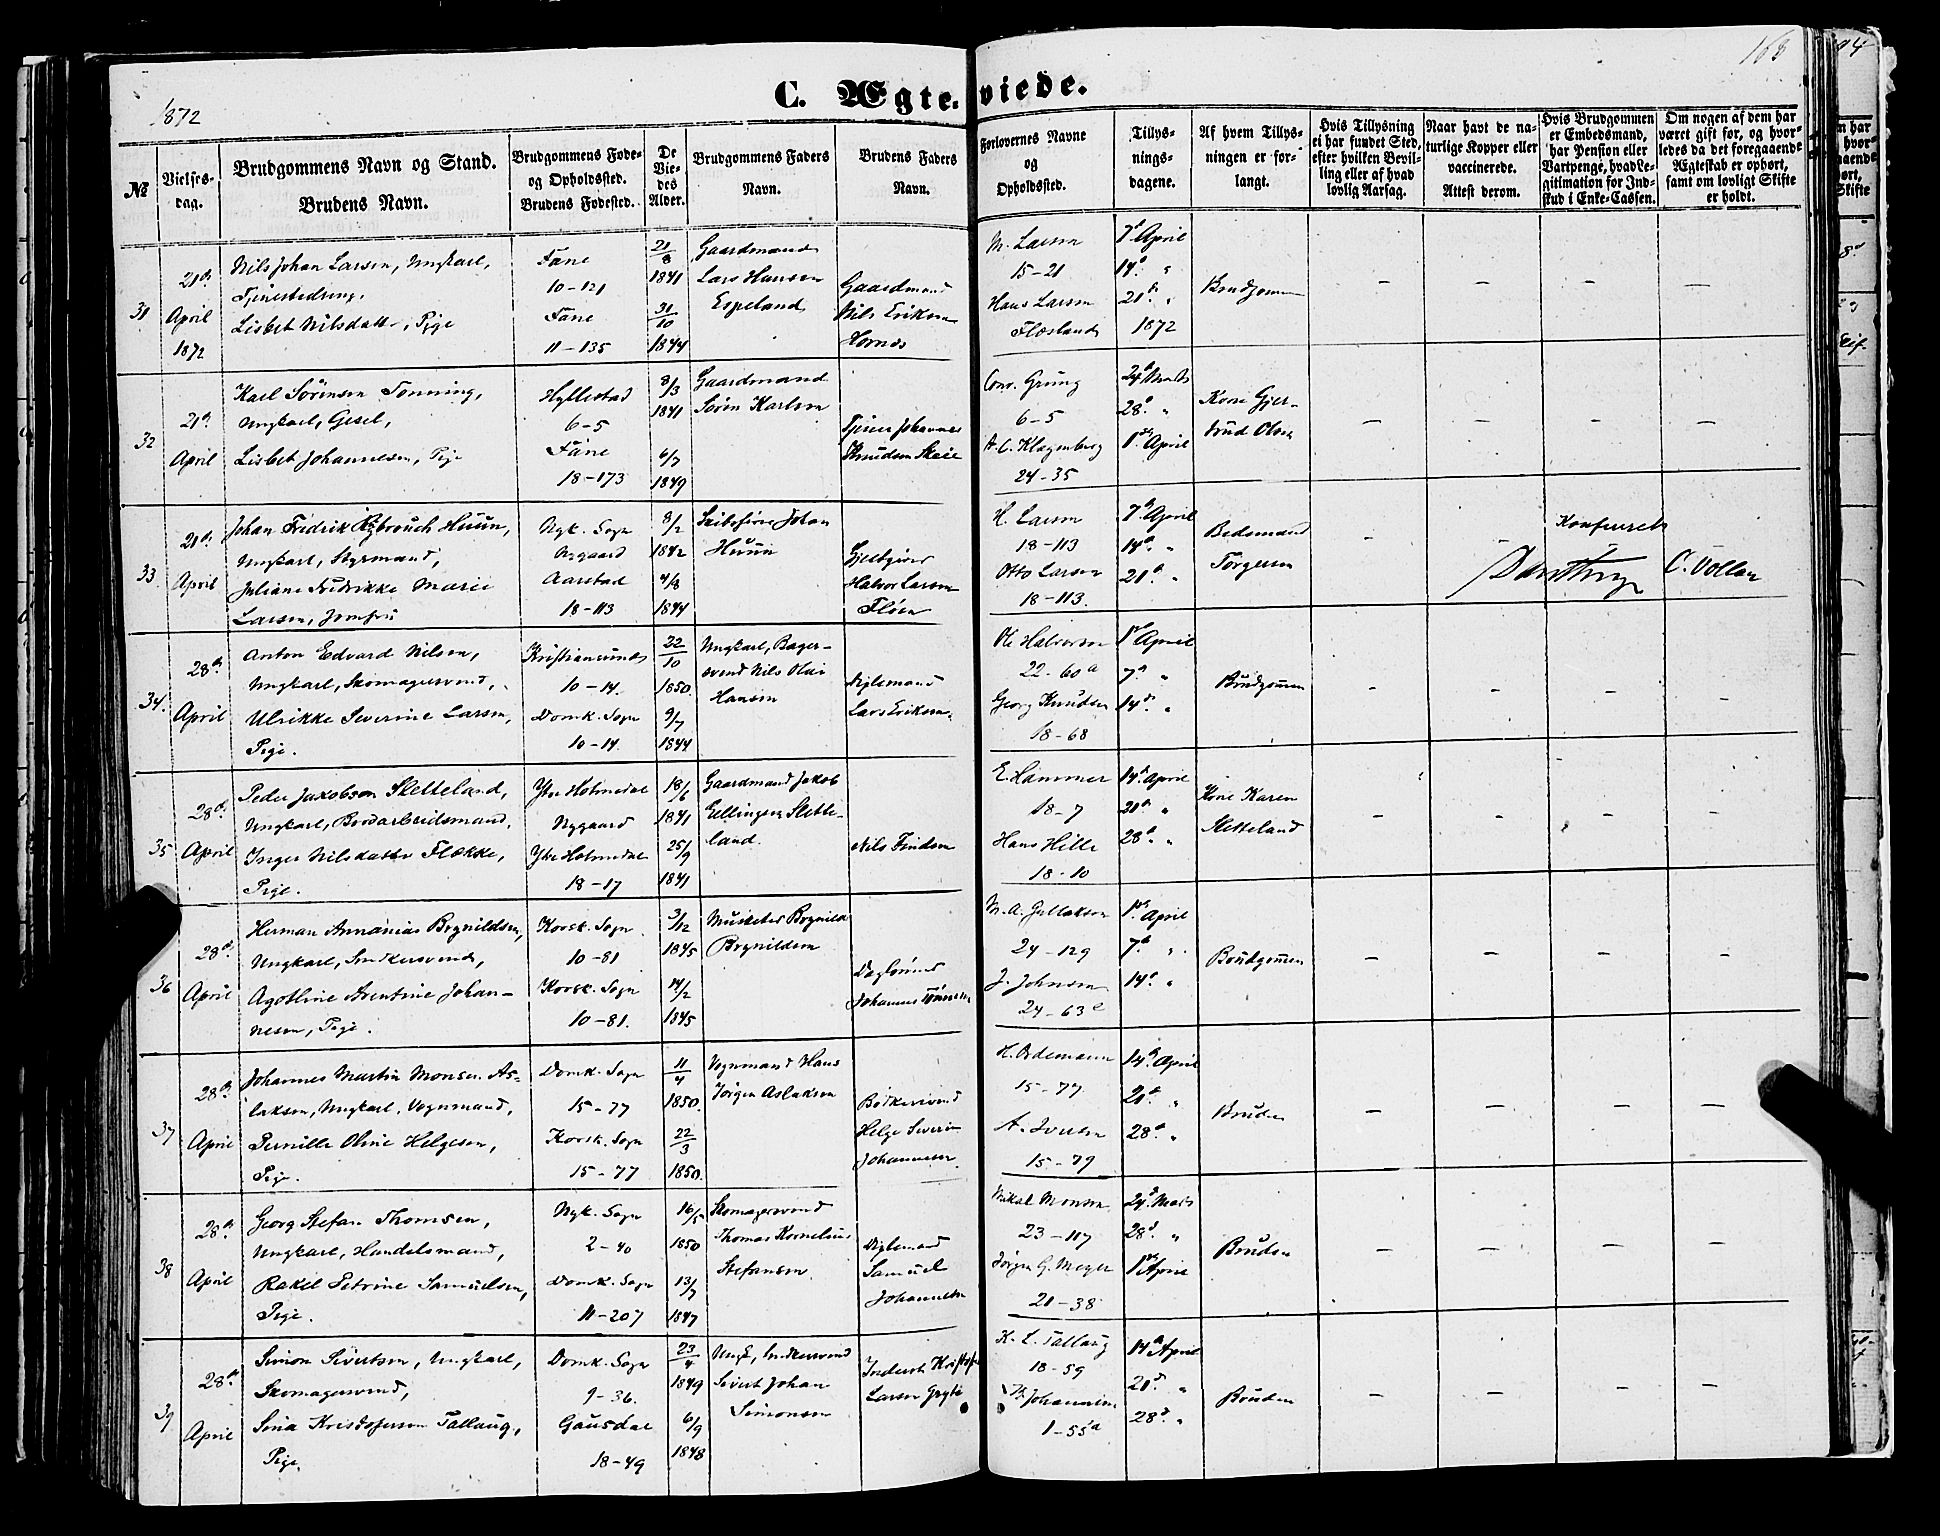 168
1872
C. Ægteviede.
№
Vielses-
dag.
Brudgommens Navn og Stand.
Brudens Navn.
Brudgommens Føde-
og Opholdssted.
Brudens Fødested.
De
Vie-
des
Alder.
Brudgommens Faders
Navn.
Brudens Faders
Navn.
Forlovernes Navne
og
Opholdssted.
Tillys-
nings-
dagene.
Af hvem Tillys-
ningen er for-
langt.
Hvis Tillysning
ei har fundet Sted,
efter hvilken Bevil-
ling eller af hvad
lovlig Aarsag.
Naar havt de na-
turlige Kopper eller
vaccinerede.
Attest derom.
Hvis Brudgommen
er Embedsmand,
har Pension eller
Vartpenge, hvad Le-
gitimation for Ind-
skud i Enke-Cassen.
Om nogen af dem har
været gift før, og hvor-
ledes da det foregaaende
Ægteskab er ophørt,
samt om lovligt Skifte
er holdt.
31
21de
April
1872
Nils Johan Larsen, Ungkarl,
Tjenestedreng,
Lisbet Nilsdatt-, Pige
Fane
10-121
Fane
11-135
21/8
1841
31/10
1844
Gaardmand
Lars Hansen
Espeland
Gaardmand
Nils Eriksen
M. Larsen
15-21
Hans Larsen
Flesland
7d April
14d "
21d "
1872
Brudgommen
- - - -
32
21de
April
Karl Sörensen Tonning,
Ungkarl, Gesel,
Lisbet Johannesen, Pige
Hyllestad
6-5
Fane
18-173
8/3
1841
6/7
1849
Gaardmand
Sören Karlsen
Tjener Johannes
Knudsen Skeie
Conr. Grung
6-5
A. C. Klagenberg
24-35
24d Marts
28d "
1ste April
Kone Gjer-
trud Olsen
- - - -
33
21de
April
Johan Fredrik Huun,
Ungkarl, Styrmand,
Juliane Fredrikke Marie
Larsen, Jomfru
Nyk. Sogn
Nygaard
Aarstad
18-113
8/2
1842
4/8
1844
Skibsförer Johan
Huun
Gjestgiver
Halvor Larsen
Flöen
H. Larsen
18-113
Otto Larsen
18-113.
7d April
14d "
21d "
Bedemand
Torgersen
-
Konfereret
C. Vollan
34.
28de
April
Anton Edvard Nilsen,
Ungkarl, Skomagersvend,
Ulrikke Severine Larsen,
Pige.
Kristiansund
10-14.
Domk. Sogn
10-14.
22/10
1850.
9/7
1844
Ungkarl, Bager-
svend Nils Olai
Hansen
Lars Eriksen.
Ole Halvorsen
22-60a
Georg Knudsen
18-68
1ste April
7d "
14d "
Brudgommen
- - - -
35
28de
April
Peder Jakobsen Sletteland,
Ungkarl, Bordarbeidsmand,
Inger Nilsdatter Flekke,
Pige.
Ytre Holmedal
Nygaard
Ytre Holmedal
18-17
18/6
1841
25/9
1841
Gaardmand Jakob
Ellingsen Slette-
land.
Nils Findsen
E. Hammer
18-7
Hans Hille
18-10
14d April
21d "
28d "
Kone Karen
Sletteland
- - - -
36
28de
April
Herman Annanias Brynildsen,
Ungkarl, Snedkersvend,
Agotline Arentine Johan-
nesen, Pige.
Korsk. Sogn
10-81
Korsk. Sogn
10-81.
3/12
1845
14/2
1845
Musketer Brynild
Brynildsen
Daglönner
Johannes
24-129
J. Johnsen
24-63c
1ste April
7d "
14d "
Brudgommen
- - - -
37
28de
April
Johannes Martin Monsen As-
laksen, Ungkarl, Vognmand,
Pernille Oline Helgesen,
Pige.
Domk. Sogn
15-77
Korsk. Sogn
15-77
11/4
1850.
22/3
1850.
Vognmand Hans
Jörgen Aslaksen
Bödkersvend
Helge Severin
Johannesen
H. Ordemann
15-77
A. Iversen
15-79
14d April
21d "
28d "
Bruden
- - - -
38
28de
April
Georg Stefan Thomsen,
Ungkarl, Handelsmand,
Rakel Petrine Samuelsen,
Pige.
Nyk. Sogn
2-40
Domk. Sogn
11-207
16/5
1850
13/7
1847
Skomagersvend
Thomas Kornelius
Stefansen
Samuel
Johannesen
Mikal Monsen
23-117
Jörgen G. Meyer
21-38
24d Marts
28d "
1ste April
Bruden
- - - -
39
28de
April
Simon Sivertsen, Ungkarl,
Skomagersvend,
Sina Kristofersen Tallaug,
Pige.
Domk. Sogn
9-36.
Gausdal
18-49
23/4
1849
6/9
1848
Ungk., Snedkersvend
Sivert Johan
Simonsen
Inderst Kristofer
Larsen
K. L. Tallaug
18-59
Johannesen
1-55a
14d April
21d "
28d "
Bruden
- - - -